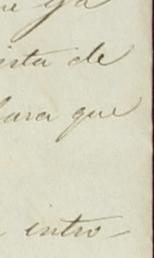 ya
ista de
lara que
intro-